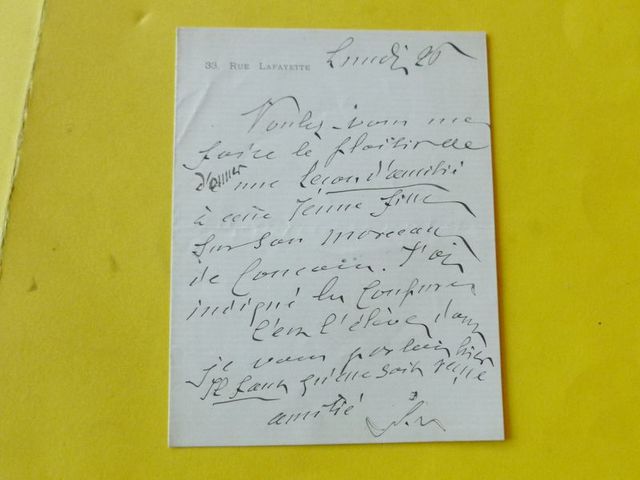 33, RUE LAFAYETTE
Lundi 26
Voulez-vous me
faire le plaisir de
donner une leçon d'amitié
à cette jeune fille
sur son morceau
de Concours. J'ai
indiqué les coupures
C'est l'élève dont
je vous parlais hier
Il faut qu'elle soit reçue
amitié